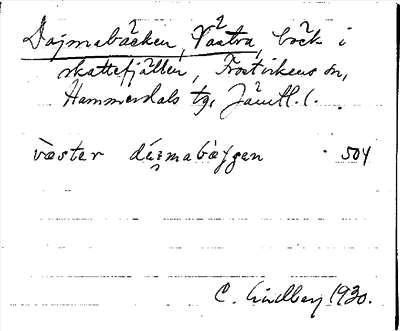 Dajmabäcken, Västra, bäck i
skattefjällen, Frostvikens sn,
Hammerdals tg, Jämtl. l.
vä̀ster dé̩mabäggen 504
C. Lindberg 1930.